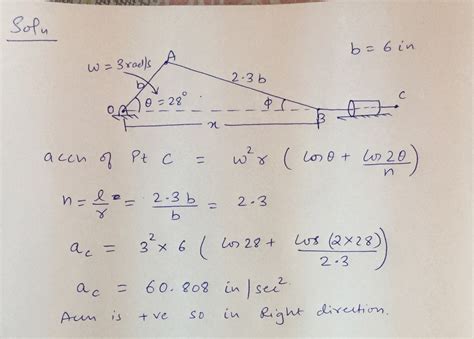 Soln
b = 6 in
A
ω = 3 rad/s
b
2.3 b
O
θ = 28°
φ
B
C
x
accn of Pt C = ω²r ( cosθ + cos2θ/n )
n = l/r = 2.3 b/b = 2.3
a_c = 3² × 6 ( cos 28 + cos (2×28)/2.3 )
a_c = 60.808 in/sec²
Accn is +ve so in Right direction.